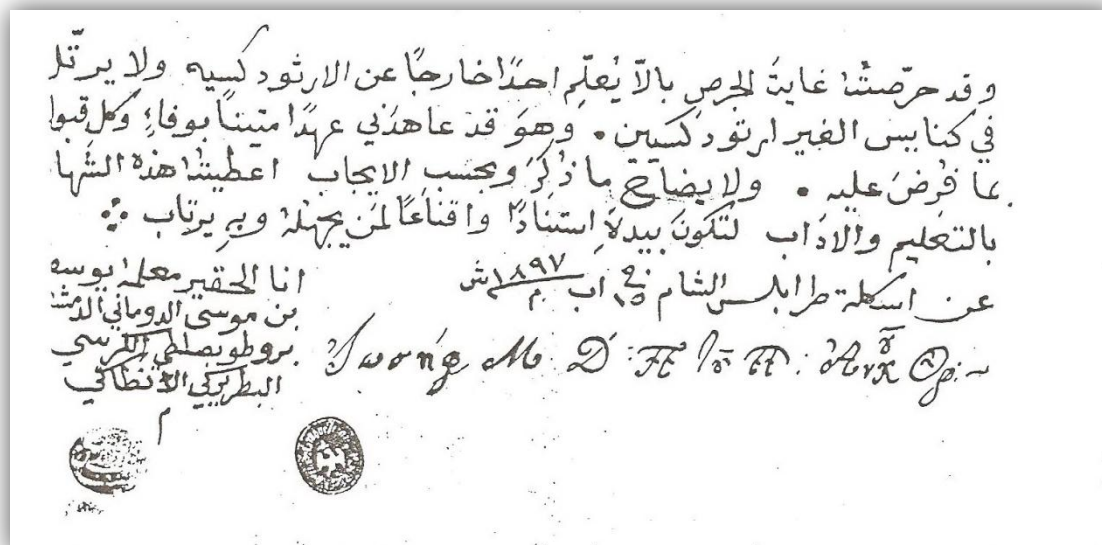 وقد حرّصتُهُ غايتَ الحرصِ بالاّ يُعلّم احدًا خارجًا عن الارثودكسيه ولا يرتّل
في كنايس الغير ارثودكسيين. وهوَ قد عاهدَني عهدًا متينًا بوفاءِ وكل قبوا
بما فُرضَ عليه. ولايضاح ما ذُكرَ وبحسب الايجاب اعطيتهُ هذهِ الشها
بالتعليم والاداب لتكونَ بيدهِ استنادًا واقناعًا لمَن يجهلهُ وبهِ يرتاب
عن اسكلة طرابلس الشام في ١٥ اب ١٨٩٧ م ش
انا الحقير معلمهُ يوسف
بن موسى الدوماني الدمشـ
بروطوبصلطي الكرسي
البطريركي الانطاكي
م
Ἰωσήφ Μ Δ